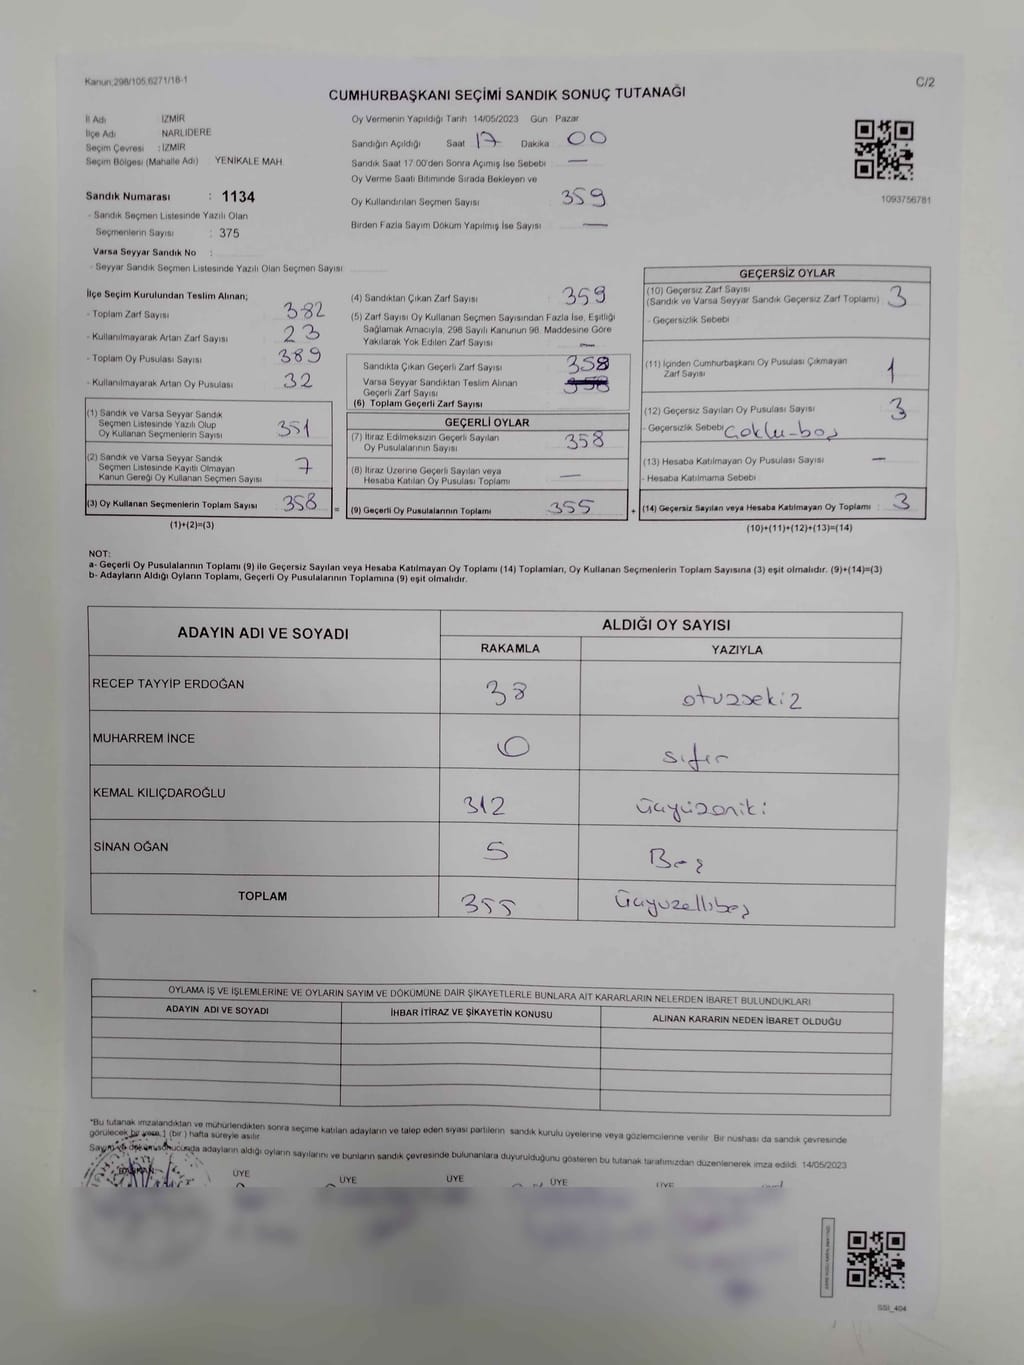 Kanun;298/105,6271/18-1
C/2
CUMHURBAŞKANI SEÇİMİ SANDIK SONUÇ TUTANAĞI
İl Adı İZMİR
İlçe Adı NARLIDERE
Seçim Çevresi : İZMİR
Seçim Bölgesi (Mahalle Adı) YENİKALE MAH.
Sandık Numarası : 1134
- Sandık Seçmen Listesinde Yazılı Olan
Seçmenlerin Sayısı : 375
Varsa Seyyar Sandık No :
- Seyyar Sandık Seçmen Listesinde Yazılı Olan Seçmen Sayısı
Oy Vermenin Yapıldığı Tarih 14/05/2023 Gün Pazar
Sandığın Açıldığı Saat 17 Dakika 00
Sandık Saat 17:00'den Sonra Açımış İse Sebebi —
Oy Verme Saati Bitiminde Sırada Bekleyen ve
Oy Kullandırılan Seçmen Sayısı 359
Birden Fazla Sayım Döküm Yapılmış İse Sayısı —
1093756781
İlçe Seçim Kurulundan Teslim Alınan;
- Toplam Zarf Sayısı 382
- Kullanılmayarak Artan Zarf Sayısı 23
- Toplam Oy Pusulası Sayısı 389
- Kullanılmayarak Artan Oy Pusulası 32
(1) Sandık ve Varsa Seyyar Sandık
Seçmen Listesinde Yazılı Olup
Oy Kullanan Seçmenlerin Sayısı 351
(2) Sandık ve Varsa Seyyar Sandık
Seçmen Listesinde Kayıtlı Olmayan
Kanun Gereği Oy Kullanan Seçmen Sayısı 7
(3) Oy Kullanan Seçmenlerin Toplam Sayısı 358 =
(1)+(2)=(3)
(4) Sandıktan Çıkan Zarf Sayısı 359
(5) Zarf Sayısı Oy Kullanan Seçmen Sayısından Fazla İse, Eşitliği
Sağlamak Amacıyla, 298 Sayılı Kanunun 98. Maddesine Göre
Yakılarak Yok Edilen Zarf Sayısı —
Sandıkta Çıkan Geçerli Zarf Sayısı 358
Varsa Seyyar Sandıktan Teslim Alınan 358
Geçerli Zarf Sayısı
(6) Toplam Geçerli Zarf Sayısı
GEÇERLİ OYLAR
(7) İtiraz Edilmeksizin Geçerli Sayılan
Oy Pusulalarının Sayısı 358
(8) İtiraz Üzerine Geçerli Sayılan veya
Hesaba Katılan Oy Pusulası Toplamı —
(9) Geçerli Oy Pusulalarının Toplamı 355 +
GEÇERSİZ OYLAR
(10) Geçersiz Zarf Sayısı
(Sandık ve Varsa Seyyar Sandık Geçersiz Zarf Toplamı) 3
- Geçersizlik Sebebi
(11) İçinden Cumhurbaşkanı Oy Pusulası Çıkmayan
Zarf Sayısı 1
(12) Geçersiz Sayılan Oy Pusulası Sayısı 3
- Geçersizlik Sebebi Çoklu-boş
(13) Hesaba Katılmayan Oy Pusulası Sayısı —
- Hesaba Katılmama Sebebi
(14) Geçersiz Sayılan veya Hesaba Katılmayan Oy Toplamı : 3
(10)+(11)+(12)+(13)=(14)
NOT:
a- Geçerli Oy Pusulalarının Toplamı (9) ile Geçersiz Sayılan veya Hesaba Katılmayan Oy Toplamı (14) Toplamları, Oy Kullanan Seçmenlerin Toplam Sayısına (3) eşit olmalıdır. (9)+(14)=(3)
b- Adayların Aldığı Oyların Toplamı, Geçerli Oy Pusulalarının Toplamına (9) eşit olmalıdır.
ADAYIN ADI VE SOYADI ALDIĞI OY SAYISI
RAKAMLA YAZIYLA
RECEP TAYYİP ERDOĞAN 38 otuzsekiz
MUHARREM İNCE 0 sıfır
KEMAL KILIÇDAROĞLU 312 üçyüzoniki
SİNAN OĞAN 5 Beş
TOPLAM 355 üçyüzellibeş
OYLAMA İŞ VE İŞLEMLERİNE VE OYLARIN SAYIM VE DÖKÜMÜNE DAİR ŞİKAYETLERLE BUNLARA AİT KARARLARIN NELERDEN İBARET BULUNDUKLARI
ADAYIN ADI VE SOYADI İHBAR İTİRAZ VE ŞİKAYETİN KONUSU ALINAN KARARIN NEDEN İBARET OLDUĞU
*Bu tutanak imzalandıktan ve mühürlendikten sonra seçime katılan adayların ve talep eden siyasi partilerin sandık kurulu üyelerine veya gözlemcilerine verilir. Bir nüshası da sandık çevresinde
görülecek bir yere 1 (bir) hafta süreyle asılır.
Sayım ve dökümü sonucunda adayların aldığı oyların sayılarını ve bunların sandık çevresinde bulunanlara duyurulduğunu gösteren bu tutanak tarafımızdan düzenlenerek imza edildi. 14/05/2023
BAŞKAN ÜYE ÜYE ÜYE ÜYE ÜYE
SSI_404